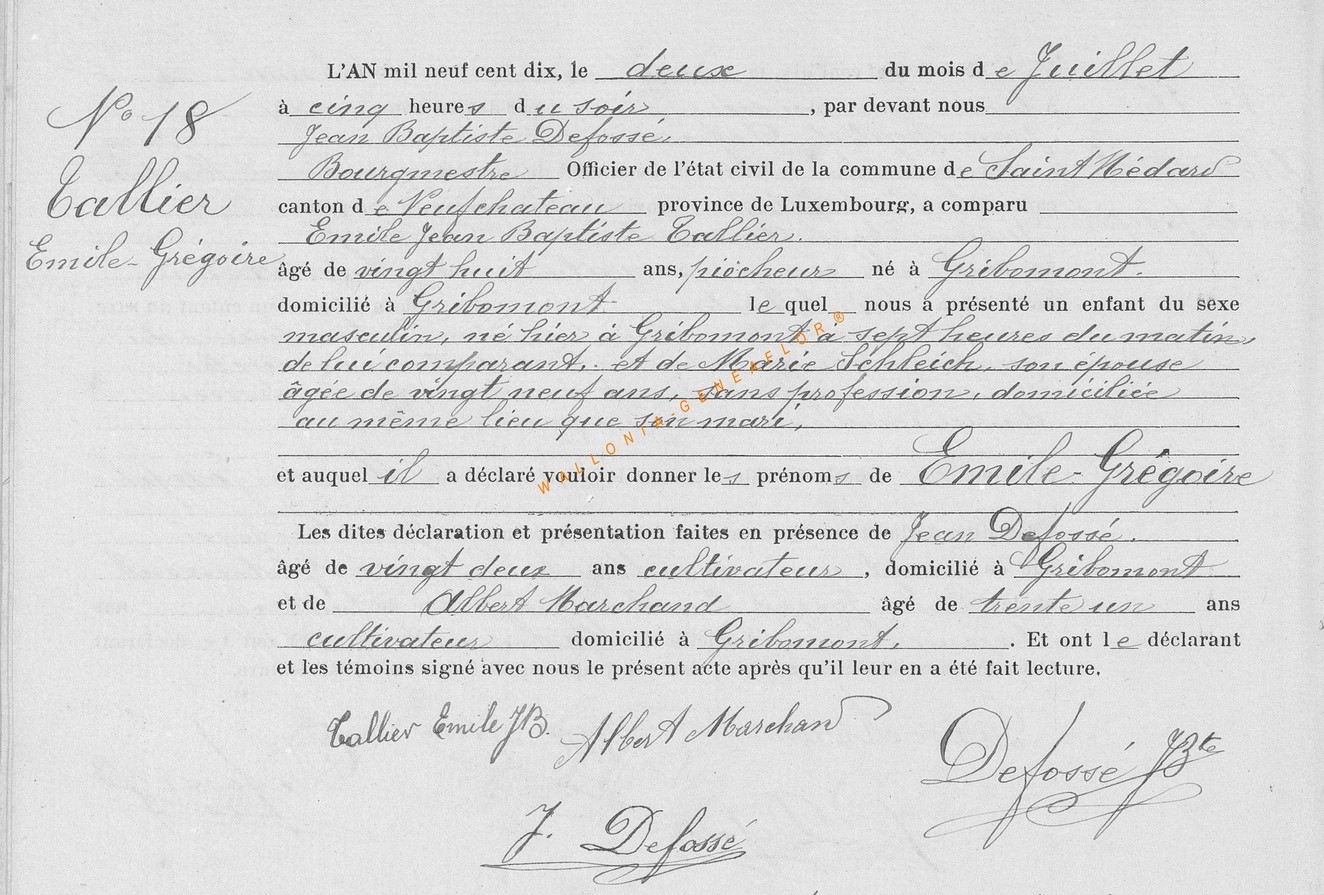 L'AN mil neuf cent dix, le deux du mois de Juillet
à cinq heures du soir, par devant nous
Jean Baptiste Defossé,
Bourgmestre Officier de l'état civil de la commune de Saint Médard
canton de Neufchateau province de Luxembourg, a comparu
Emile Jean Baptiste Tallier.
âgé de vingt huit ans, piocheur né à Gribomont.
domicilié à Gribomont lequel nous a présenté un enfant du sexe
masculin, né hier à Gribomont à sept heures du matin,
de lui comparant, et de Marie Schleich, son épouse
âgée de vingt neuf ans, sans profession, domiciliée
au même lieu que son mari,
et auquel il a déclaré vouloir donner les prénoms de Emile-Grégoire
Les dites déclaration et présentation faites en présence de Jean Defossé.
âgé de vingt deux ans cultivateur, domicilié à Gribomont
et de Albert Marchand âgé de trente un ans
cultivateur domicilié à Gribomont. . Et ont le déclarant
et les témoins signé avec nous le présent acte après qu'il leur en a été fait lecture.
N° 18
Tallier
Emile-Grégoire
WALLONIA-GENEAFLOR®
Tallier Emile JB. Albert Marchand
Defossé JBte
J. Defossé